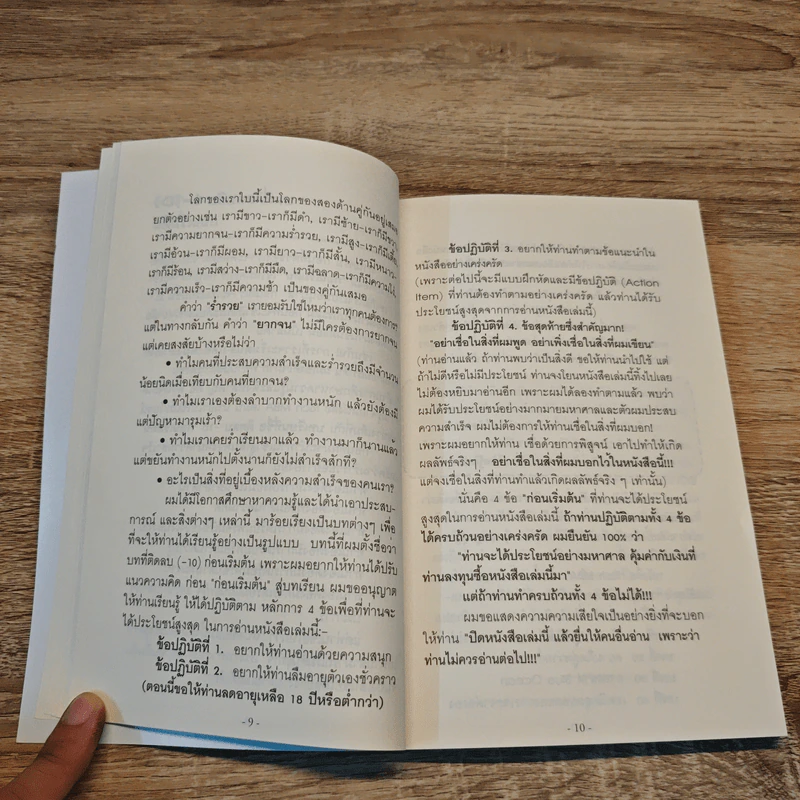 โลกของเราใบนี้เป็นโลกของสองด้านคู่กันอยู่เสมอ
ยกตัวอย่างเช่น เรามีขาว-เราก็มีดำ, เรามีซ้าย-เราก็มีขวา,
เรามีความยากจน-เราก็มีความร่ำรวย, เรามีสูง-เราก็มีเตี้ย
เรามีอ้วน-เราก็มีผอม, เรามียาว-เราก็มีสั้น, เรามีหนาว-
เราก็มีร้อน, เรามีสว่าง-เราก็มีมืด, เรามีฉลาด-เราก็มีความโง่,
เรามีความเร็ว-เราก็มีความช้า เป็นของคู่กันเสมอ
คำว่า "ร่ำรวย" เรายอมรับใช่ไหมว่าเราทุกคนต้องการ?
แต่ในทางกลับกัน คำว่า "ยากจน" ไม่มีใครต้องการยากจน
แต่เคยสงสัยบ้างหรือไม่ว่า
• ทำไมคนที่ประสบความสำเร็จและร่ำรวยถึงมีจำนวน
น้อยนิดเมื่อเทียบกับคนที่ยากจน?
• ทำไมเราเองต้องลำบากทำงานหนัก แล้วยังต้องมี
แต่ปัญหามารุมเร้า?
• ทำไมเราเคยร่ำเรียนมาแล้ว ทำงานมาก็นานแล้ว
แต่ขยันทำงานหนักไปตั้งนานก็ยังไม่สำเร็จสักที?
• อะไรเป็นสิ่งที่อยู่เบื้องหลังความสำเร็จของคนเรา?
ผมได้มีโอกาสศึกษาหาความรู้และได้นำเอาประสบ-
การณ์ และสิ่งต่างๆ เหล่านี้ มาร้อยเรียงเป็นบทต่างๆ เพื่อ
ที่จะให้ท่านได้เรียนรู้อย่างเป็นรูปแบบ บทนี้ที่ผมตั้งชื่อว่า
บทที่ติดลบ (-10) ก่อนเริ่มต้น เพราะผมอยากให้ท่านได้ปรับ
แนวความคิด ก่อน "ก่อนเริ่มต้น" สู่บทเรียน ผมขออนุญาต
ให้ท่านเรียนรู้ ให้ได้ปฏิบัติตาม หลักการ 4 ข้อเพื่อที่ท่านจะ
ได้ประโยชน์สูงสุด ในการอ่านหนังสือเล่มนี้:-
ข้อปฏิบัติที่ 1. อยากให้ท่านอ่านด้วยความสนุก
ข้อปฏิบัติที่ 2. อยากให้ท่านลืมอายุตัวเองชั่วคราว
(ตอนนี้ขอให้ท่านลดอายุเหลือ 18 ปีหรือต่ำกว่า)
- 9 -
ข้อปฏิบัติที่ 3. อยากให้ท่านทำตามข้อแนะนำใน
หนังสืออย่างเคร่งครัด
(เพราะต่อไปนี้จะมีแบบฝึกหัดและมีข้อปฏิบัติ (Action
Item) ที่ท่านต้องทำตามอย่างเคร่งครัด แล้วท่านได้รับ
ประโยชน์สูงสุดจากการอ่านหนังสือเล่มนี้)
ข้อปฏิบัติที่ 4. ข้อสุดท้ายซึ่งสำคัญมาก!
"อย่าเชื่อในสิ่งที่ผมพูด อย่าเพิ่งเชื่อในสิ่งที่ผมเขียน"
(ท่านอ่านแล้ว ถ้าท่านพบว่าเป็นสิ่งดี ขอให้ท่านนำไปใช้ แต่
ถ้าไม่ดีหรือไม่มีประโยชน์ ท่านจงโยนหนังสือเล่มนี้ทิ้งไปเลย
ไม่ต้องหยิบมาอ่านอีก เพราะผมได้ลองทำตามแล้ว พบว่า
ผมได้รับประโยชน์อย่างมากมายมหาศาลและตัวผมประสบ
ความสำเร็จ ผมไม่ต้องการให้ท่านเชื่อในสิ่งที่ผมบอก!
เพราะผมอยากให้ท่าน เชื่อด้วยการพิสูจน์ เอาไปทำให้เกิด
ผลลัพธ์จริงๆ อย่าเชื่อในสิ่งที่ผมบอกไว้ในหนังสือนี้!!!
แต่จงเชื่อในสิ่งที่ท่านทำแล้วเกิดผลลัพธ์จริง ๆ เท่านั้น)
นั่นคือ 4 ข้อ "ก่อนเริ่มต้น" ที่ท่านจะได้ประโยชน์
สูงสุดในการอ่านหนังสือเล่มนี้ ถ้าท่านปฏิบัติตามทั้ง 4 ข้อ
ได้ครบถ้วนอย่างเคร่งครัด ผมยืนยัน 100% ว่า
"ท่านจะได้ประโยชน์อย่างมหาศาล คุ้มค่ากับเงินที่
ท่านลงทุนซื้อหนังสือเล่มนี้มา"
แต่ถ้าท่านทำครบถ้วนทั้ง 4 ข้อไม่ได้!!!
ผมขอแสดงความความเสียใจเป็นอย่างยิ่งที่จะบอก
ให้ท่าน "ปิดหนังสือเล่มนี้ แล้วยื่นให้คนอื่นอ่าน เพราะว่า
ท่านไม่ควรอ่านต่อไป!!!"
- 10 -